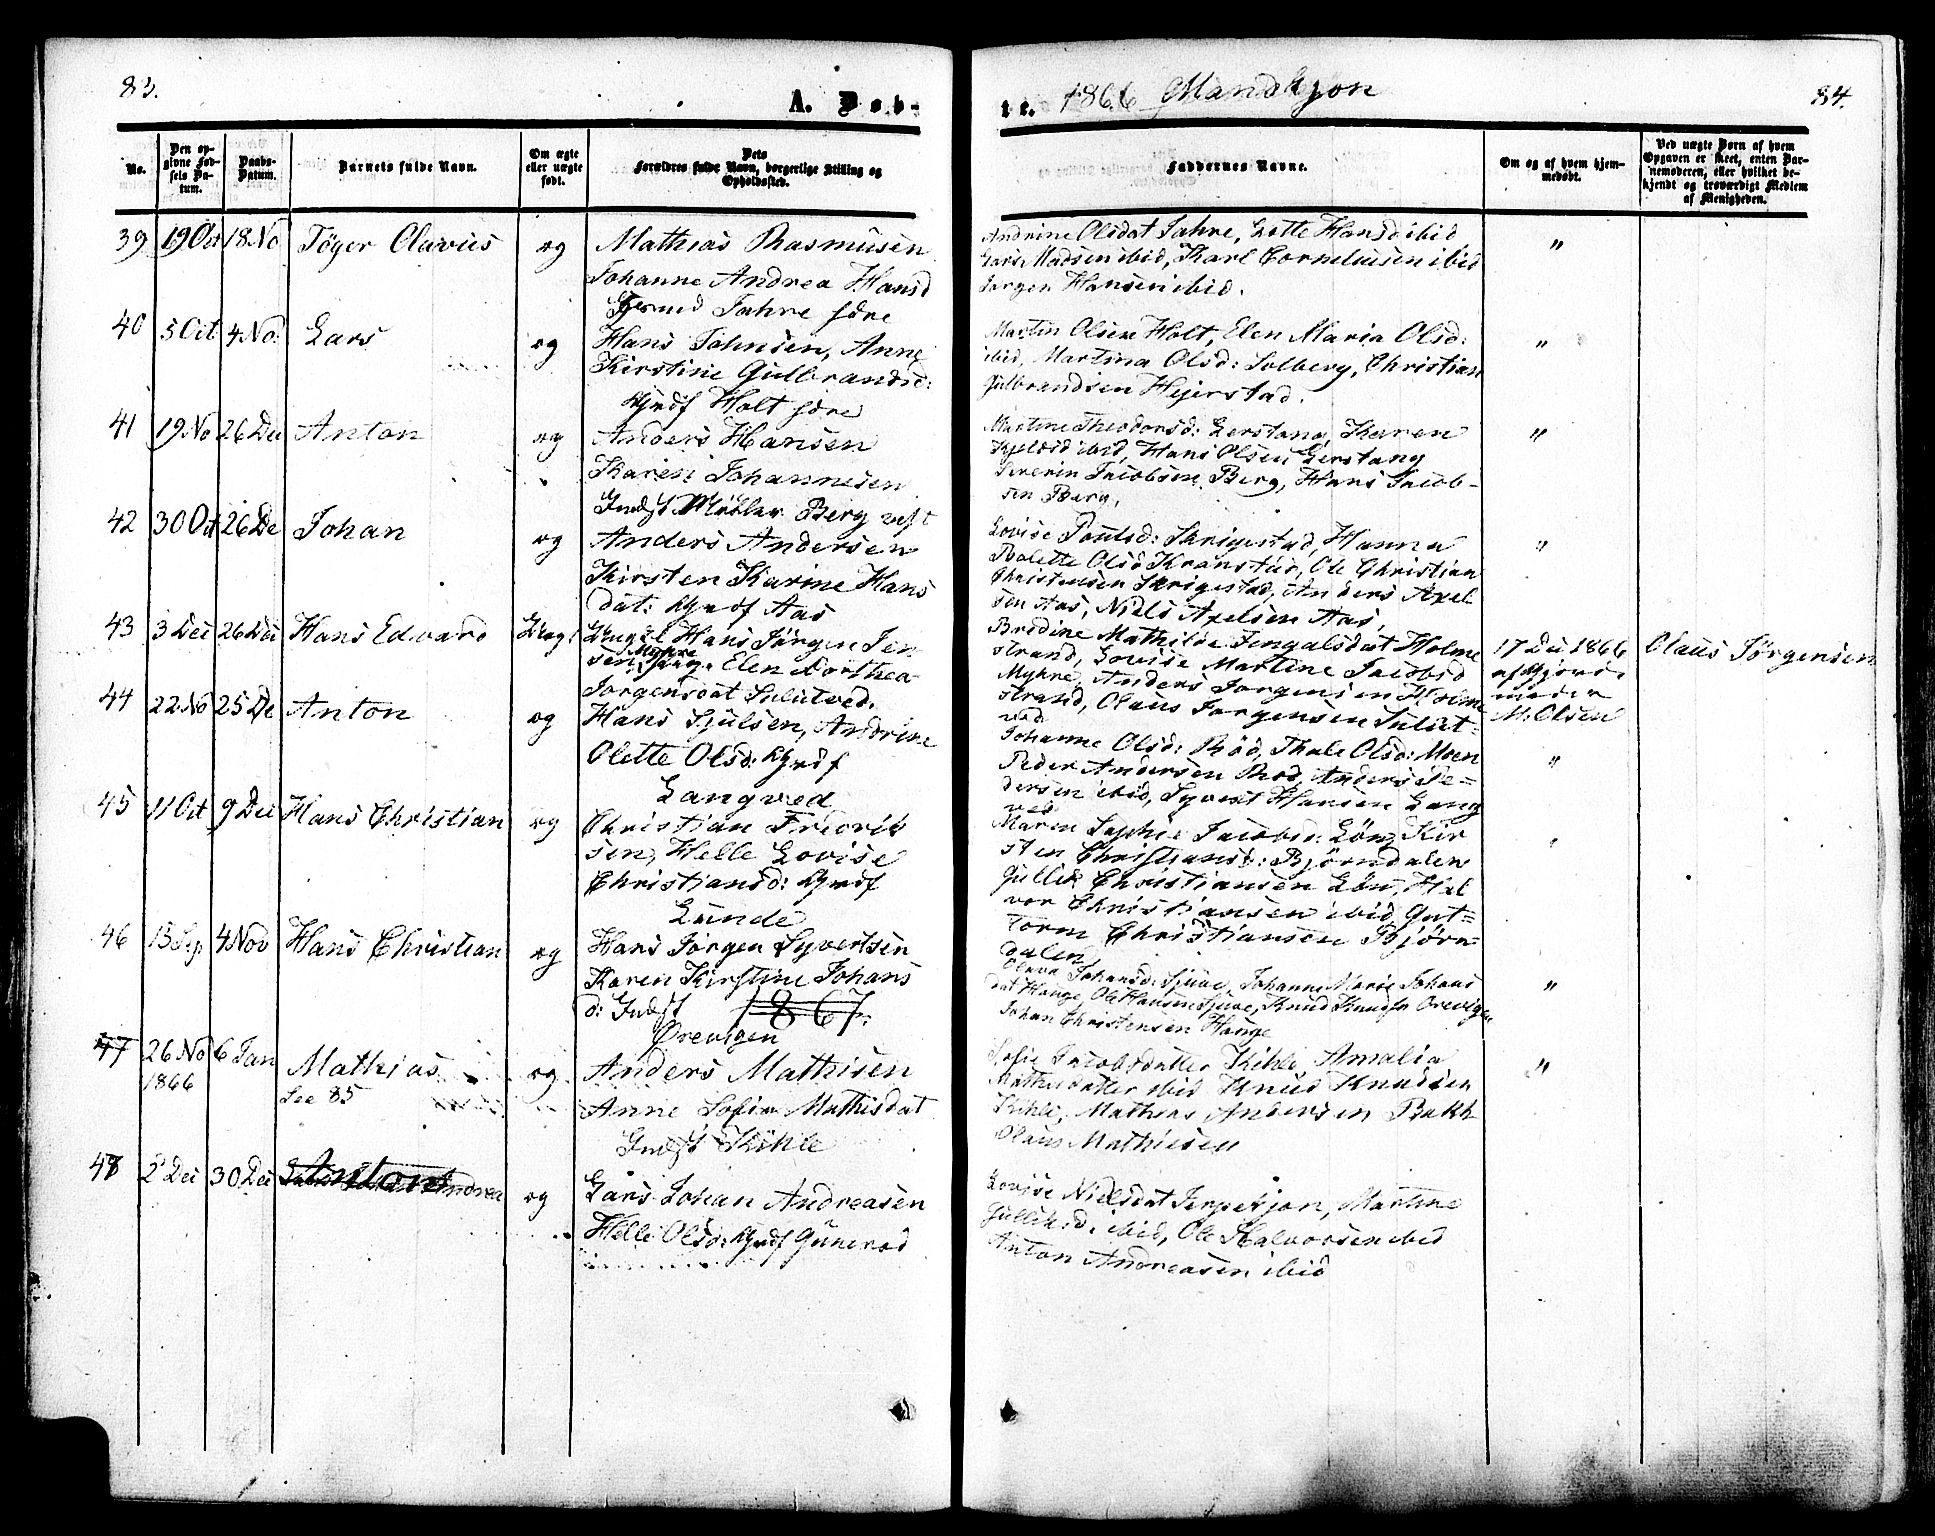 83.
A. Døb-
te. 1866 Mandkjøn
84.
No.
Den op-
givne Fød-
sels Da-
tum.
Daabs-
Datum.
Barnets fulde Navn.
Om ægte
eller uægte
født.
Dets
Forældres fulde Navn, borgerlige Stilling og
Opholdssted.
Faddernes Navne.
Om og af hvem hjem-
medøbt.
Ved uægte Børn af hvem
Opgaven er skeet, enten Bar-
nemoderen, eller hvilket be-
kjendt og troværdigt Medlem
af Menigheden.
39 19 Oct 18 No Töger Olavus æg Mathias Rasmusen
Johanne Andrea Hansd
Jahre søre
Andrine Olsdat Jahre, Lotte Hansd ibid
Lars Madsen ibid, Karl Corneliusen ibid
Jørgen Hansen ibid.
"
40 5 Oct 4 No: Lars æg Hans Johnsen, Anne
Kirstine Gulbrandsd:
Gbrdf Holt søre
Martin Olsen Holt, Elen Maria Olsd:
ibid, Martina Olsd: Solberg, Christian
Gulbrandsen Hejerstad.
"
41 19 No 26 Dec Anton æg Anders Hansen
Karen Johannesen
Indst Møller Berg vest
Martine Theodorsd: Gerstang, Karen
ibid, Hans Olsen Gerstang
Severin Jacobsen Berg, Hans Jacob-
sen Berg,
"
42 30 Oct 26 De Johan æg Anders Andersen
Kirsten Karine Hans
dat: Gbrdf Aas
Lovise Poulsd: Skrigestad, Hanna
Bolette Olsd Kranstad, Ole Christian
Christensen Skrigestad, Anders Axel
sen Aas, Niels Axelsen Aas,
"
43 3 Dec 26 Dec Hans Edvard Uæg: Ungk Hans Jörgen Jen
sen Myhre, Pige Elen Dorthea
Jorgensdat Sulutved.
Bredine Mathilde Jengalsdat Holme
strand, Lovise Martine Jacobsd
Myhre, Anders Jorgensen Holme
strand, Olaus Jorgensen Sulut-
ved.
17 Dec 1866
af Gjord-
moder
M. Olsen
Olaus Jörgensen
44 22 No 25 De Anton æg Hans Sjulsen, Andrine
Olette Olsd: Gbrdf
Langved
Johanne Olsd: Röd, Thale Olsd: Moen
Peder Andersen Röd, Anders Pe-
dersen ibid, Syvert Hansen Lang
ved
"
45 11 Oct 9 Dec Hans Christian æg Christian Fredrik
sen, Helle Lovise
Christiansd: Gbrdf
Lunde
Maren Sophie Jacobsd: Lön, Kir
sten Christiansd: Björndalen
Gullik Christiansen Lön, Hal
vor Christiansen ibid, Gut-
torm Christiansen Björn
dalen,
46 13 Sep. 4 Nov Hans Christian æg Hans Jörgen Syvertsen
Karen Kirstine Johans
d: Indst 1867.
Ørevigen
Olava Johansd: Sjuve, Johanne Marie Johans
dat Hauge, Ole Hansen Sjuve, Knud Knudsn Orevigen
Johan Christensen Hauge
"
47 26 No 6 Jan
1866
Mathias
See 85
æg Anders Mathisen
Anne Sofie Mathisdat
Indst Kihle
Sofie Jacobsdatter Kihle, Amalia
Mathisdatter ibid Knud Knudsen
Kihle, Mathias Andersen Bakk
Olaus Mathiesen
"
48 2 Dec 30 Dec Anton Andrea æg Lars Johan Andreasen
Helle Olsd: Gbrdf Gunerød
Lovise Nielsdat Jerpekjøn, Martine
Gulliksd. ibid, Ole Halvorsen ibid
Anton Andreasen ibid